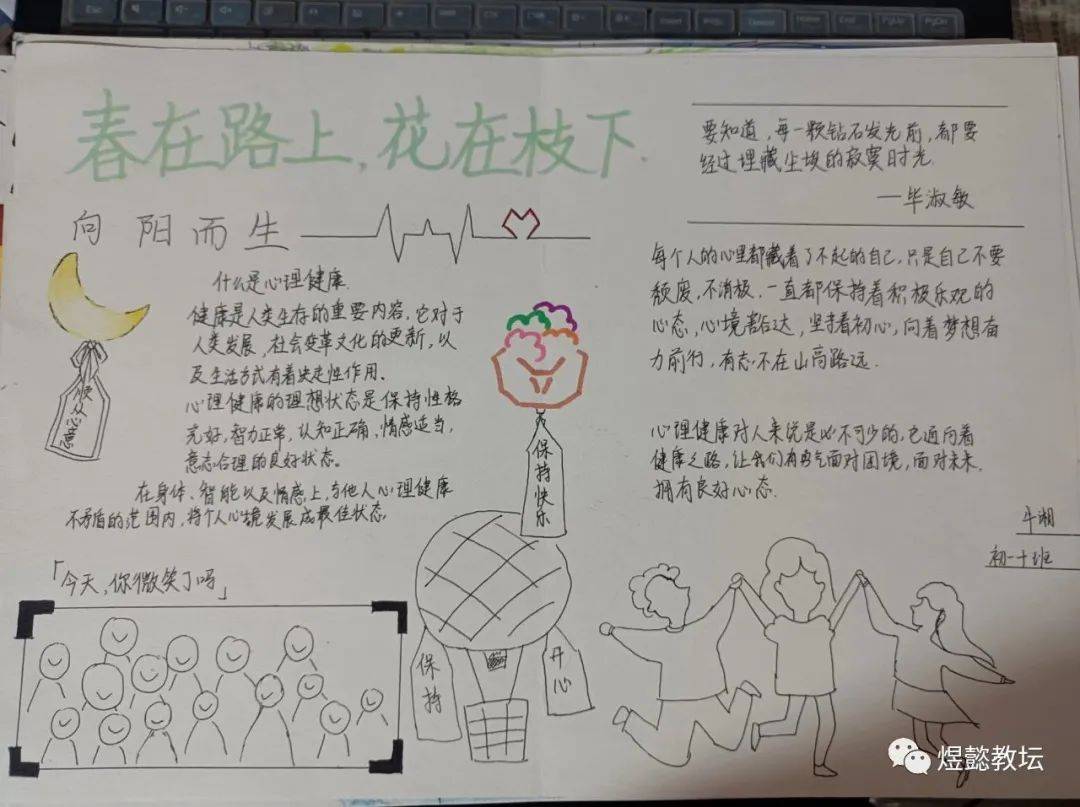 春在路上，花在枝下.
向阳而生
什么是心理健康.
健康是人类生存的重要内容，它对于
人类发展，社会变革文化的更新，以
及生活方式有着决定性作用.
心理健康的理想状态是保持性格
完好，智力正常，认知正确，情感适当，
意志合理的良好状态。
在身体、智能以及情感上，与他人心理健康
不矛盾的范围内，将个人心境发展成最佳状态.
顺从心意
保持快乐
「今天，你微笑了吗」
保持
开心
要知道，每一颗钻石发光前，都要
经过埋藏尘埃的寂寞时光.
—毕淑敏
每个人的心里都藏着了不起的自己，只是自己不要
颓废，不消极，一直都保持着积极乐观的
心态，心境豁达，坚持着初心，向着梦想奋
力前行，有志不在山高路远.
心理健康对人来说是必不可少的，它通向着
健康之路，让我们有勇气面对困境，面对未来.
拥有良好心态.
牛湘
初一十班
煜懿教坛
Esc
Insert
Delete
Home
End
PgUp
PgDn